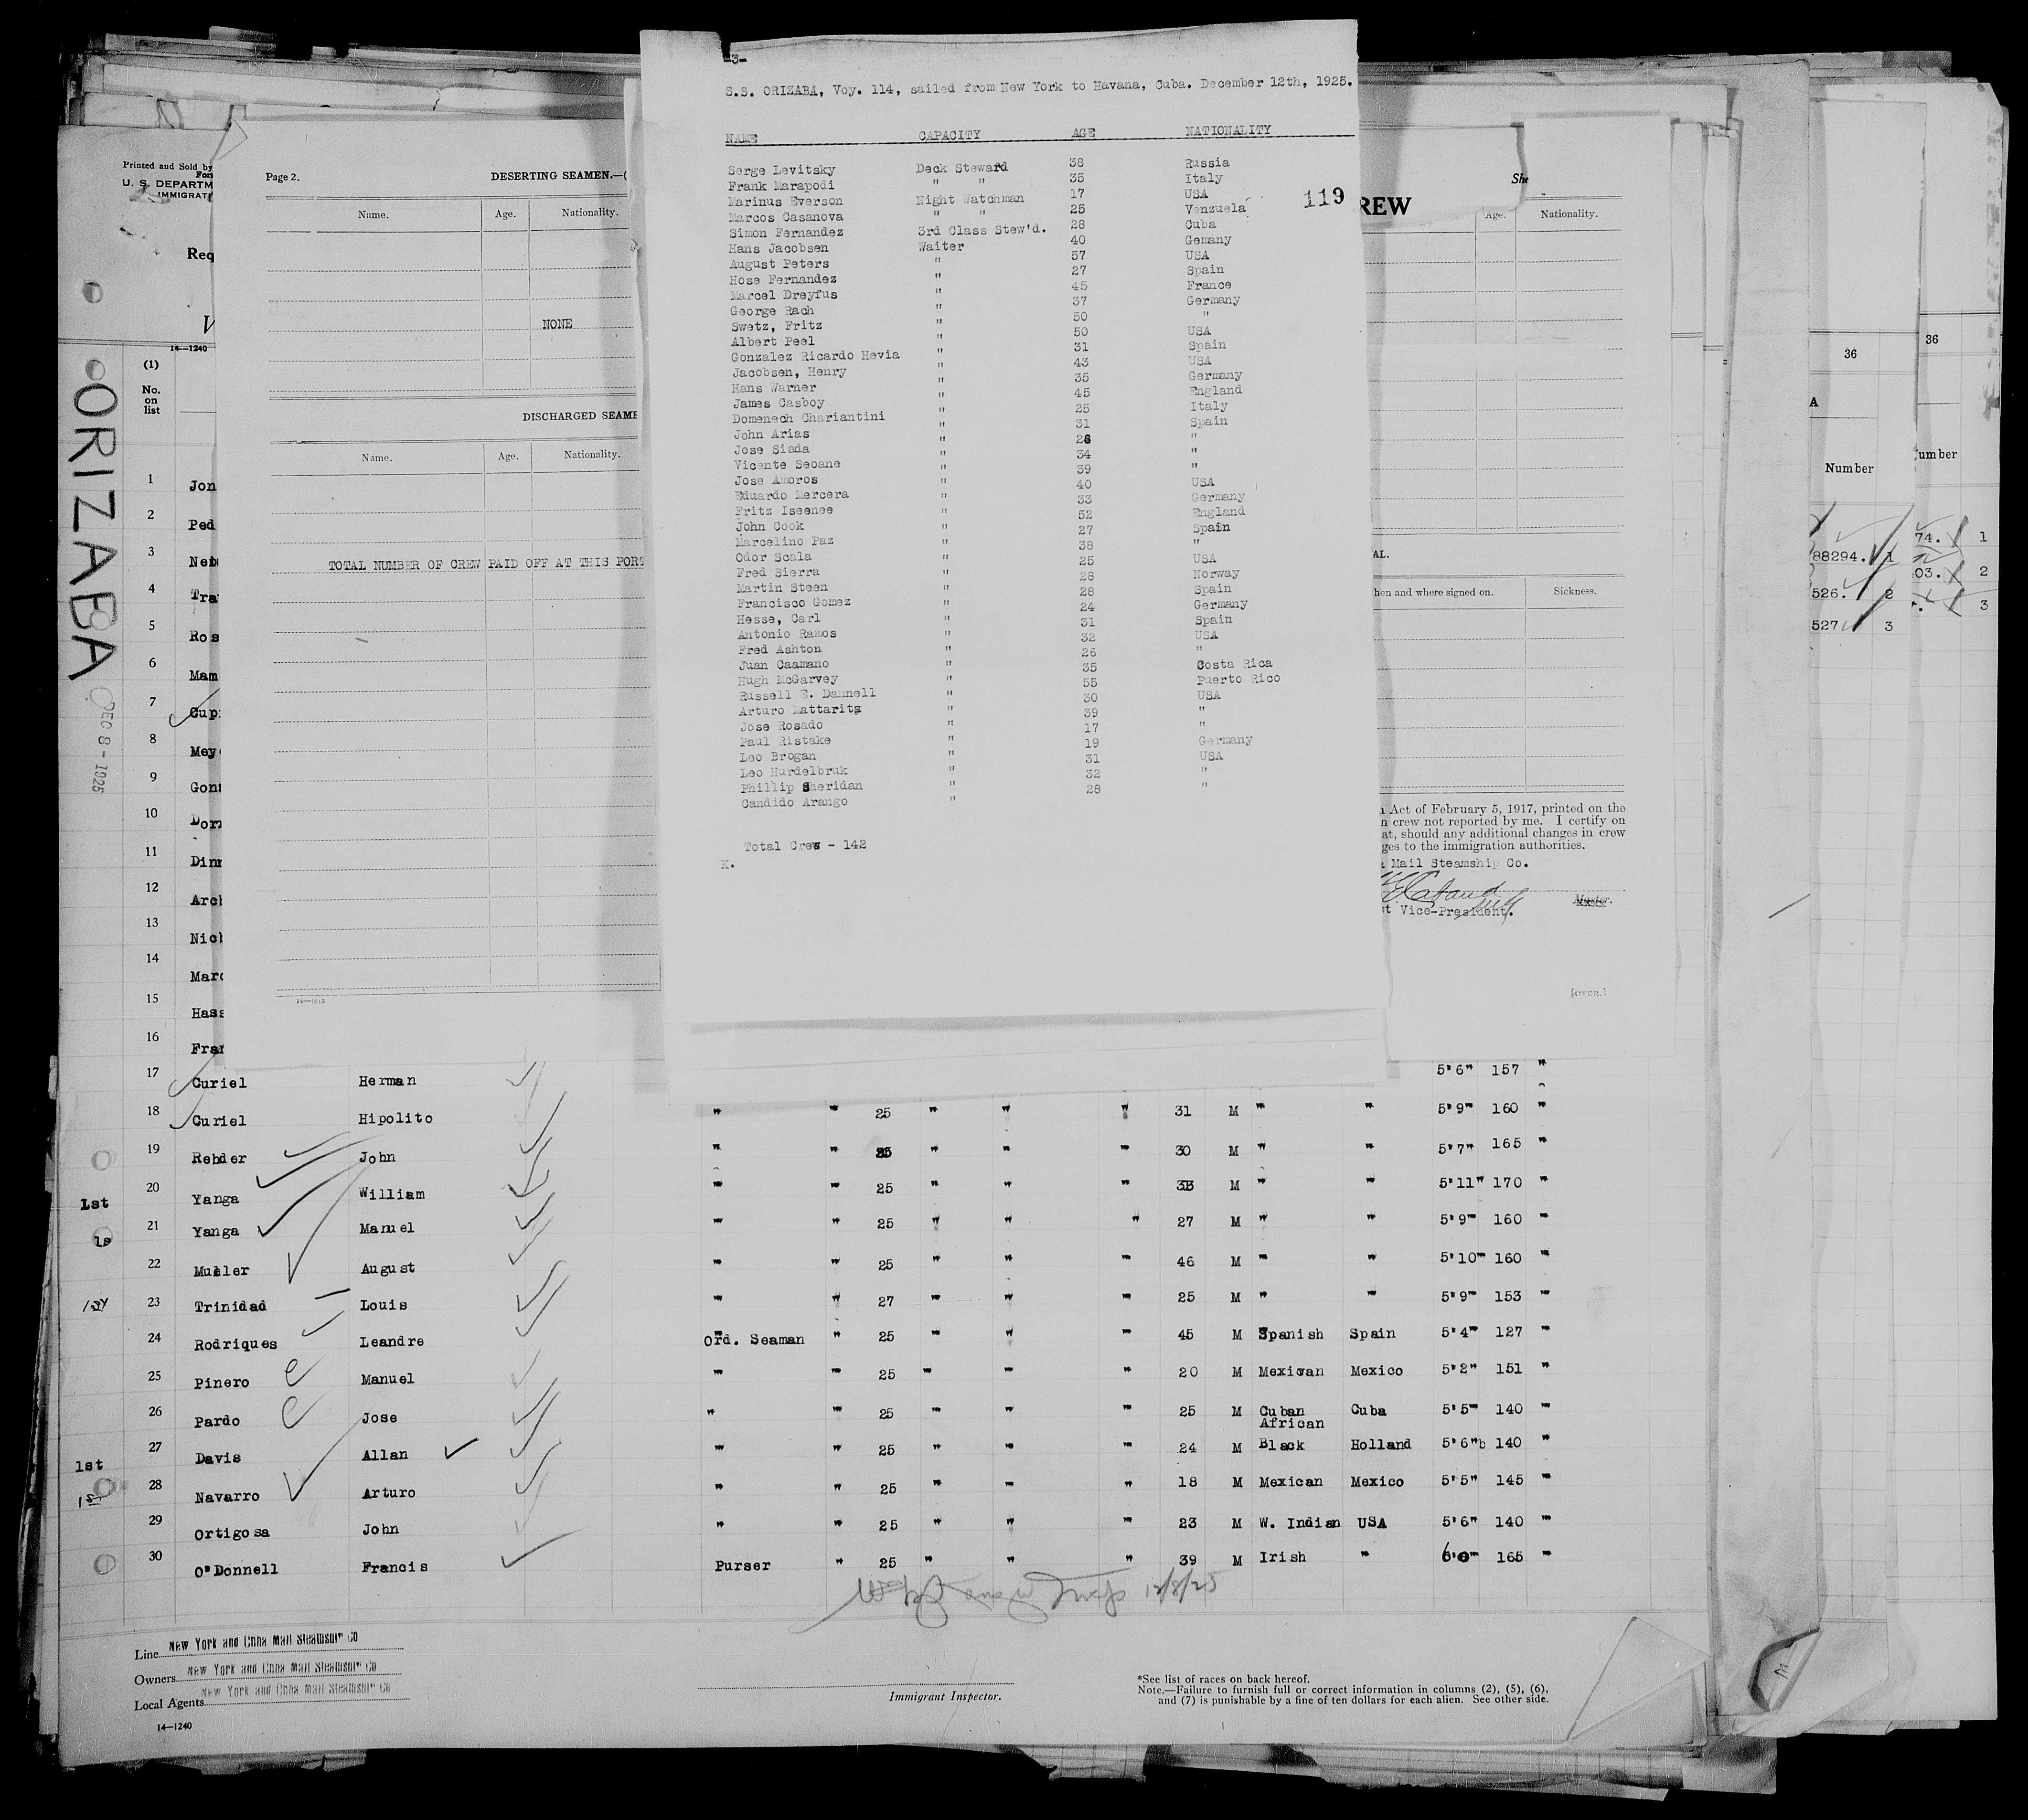 -3-
S.S. ORIZABA, Voy. 114, sailed from New York to Havana, Cuba. December 12th, 1925.
NAME CAPACITY AGE NATIONALITY
Serge Levitsky Deck Steward 38 Russia
Frank Marapodi " " 35 Italy
Marinus Everson Night Watchman 17 USA
Marcos Casanova " " 25 Venzuela
Simon Fernandez 3rd Class Stew'd. 28 Cuba
Hans Jacobsen Waiter 40 Gemany
August Peters " 57 USA
Hose Fernandez " 27 Spain
Marcel Dreyfus " 45 France
George Rach " 37 Germany
Swetz, Fritz " 50 "
Albert Peel " 50 USA
Gonzalez Ricardo Hevia " 31 Spain
Jacobsen, Henry " 43 USA
Hans Warner " 35 Germany
James Casboy " 45 England
Domenech Chariantini " 25 Italy
John Arias " 31 Spain
Jose Siada " 26 "
Vicente Seoane " 34 "
Jose Amoros " 39 "
Eduardo Mercera " 40 USA
Fritz Iseenee " 33 Germany
John Cook " 52 England
Marcelino Paz " 27 Spain
Odor Scala " 38 "
Fred Sierra " 25 USA
Martin Steen " 28 Norway
Francisco Gomez " 28 Spain
Hesse, Carl " 24 Germany
Antonio Ramos " 31 Spain
Fred Ashton " 32 USA
Juan Caamano " 26 "
Hugh McGarvey " 35 Costa Rica
Russell E. Dannell " 55 Puerto Rico
Arturo Mattarita " 30 USA
Jose Rosado " 39 "
Paul Ristake " 17 "
Leo Brogan " 19 Germany
Leo Hurdelbruk " 31 USA
Phillip Sheridan " 32 "
Candido Arango " 28 "
Total Crew - 142
K.
119
Printed and Sold by
U. S. DEPARTM
IMMIGRAT
Req
14—1240
ORIZABA
DEC 8 - 1925
(1)
No.
on
list
1 Jon
2 Ped
3 Neb
4 Tra
5 Ros
6 Mam
7 Cup
8 Mey
9 Gon
10 Dorn
11 Dinn
12 Arch
13 Nich
14 Marc
15 Hass
16 Fran
Page 2. DESERTING SEAMEN.—(
Name. Age. Nationality.
NONE
DISCHARGED SEAME
Name. Age. Nationality.
TOTAL NUMBER OF CREW PAID OFF AT THIS PORT
REW
She
Age. Nationality.
AL.
hen and where signed on. Sickness.
n Act of February 5, 1917, printed on the
n crew not reported by me. I certify on
at, should any additional changes in crew
ges to the immigration authorities.
a Mail Steamship Co.
t Vice-President. Master.
[OVER.]
36
A
Number
88294. 1
526. 2
527 3
36
umber
74. 1
03. 2
3
17 Curiel Herman 5'6" 157 "
18 Curiel Hipolito " " 25 " " " 31 M " " 5'9" 160 "
19 Rehder John " " 25 " " " 30 M " " 5'7" 165 "
1st 20 Yanga William " " 25 " " " 33 M " " 5'11" 170 "
1s 21 Yanga Manuel " " 25 " " " 27 M " " 5'9" 160 "
22 Muller August " " 25 " " " 46 M " " 5'10" 160 "
23 Trinidad Louis " " 27 " " " 25 M " " 5'9" 153 "
24 Rodriques Leandre Ord. Seaman " 25 " " " 45 M Spanish Spain 5'4" 127 "
25 Pinero Manuel " " 25 " " " 20 M Mexican Mexico 5'2" 151 "
26 Pardo Jose " " 25 " " " 25 M Cuban Cuba 5'5" 140 "
African
1st 27 Davis Allan " " 25 " " " 24 M Black Holland 5'6" 140 "
1st 28 Navarro Arturo " " 25 " " " 18 M Mexican Mexico 5'5" 145 "
29 Ortigosa John " " 25 " " " 23 M W. Indian USA 5'6" 140 "
30 O'Donnell Francis Purser " 25 " " " 39 M Irish " 6'0" 165 "
12/8/25
Line New York and Cuba Mail Steamship Co
Owners New York and Cuba Mail Steamship Co
Local Agents New York and Cuba Mail Steamship Co
14—1240
Immigrant Inspector.
*See list of races on back hereof.
Note.—Failure to furnish full or correct information in columns (2), (5), (6),
and (7) is punishable by a fine of ten dollars for each alien. See other side.